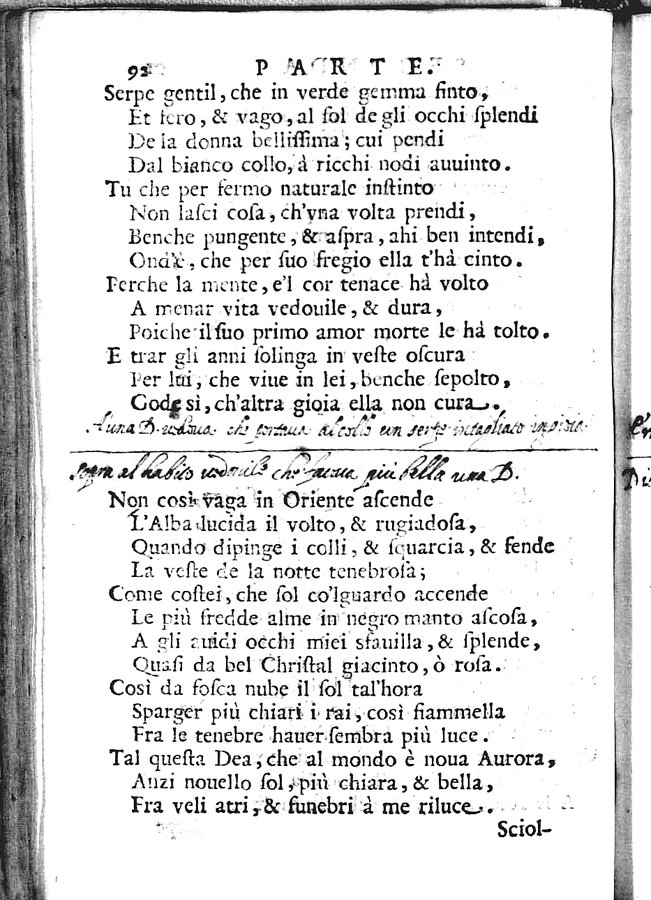 92 PARTE.
Serpe gentil, che in verde gemma finto,
Et fero, & vago, al sol de gli occhi splendi
De la donna bellissima; cui pendi
Dal bianco collo, à ricchi nodi auuinto.
Tu che per fermo naturale instinto
Non lasci cosa, ch'vna volta prendi,
Benche pungente, & aspra, ahi ben intendi,
Ond'è, che per suo fregio ella t'hà cinto.
Perche la mente, e'l cor tenace hà volto
A menar vita vedouile, & dura,
Poiche il suo primo amor morte le hà tolto.
E trar gli anni solinga in veste oscura
Per lui, che viue in lei, benche sepolto,
Gode sì, ch'altra gioia ella non cura.
A una D. vedova che portava al collo un serpe intagliato in
sopra al habito vedouile che faceua più bella una D.
Non così vaga in Oriente ascende
L'Alba lucida il volto, & rugiadosa,
Quando dipinge i colli, & squarcia, & fende
La veste de la notte tenebrosa;
Come costei, che sol co'lguardo accende
Le più fredde alme in negro manto ascosa,
A gli auidi occhi miei sfauilla, & splende,
Quasi da bel Christal giacinto, ò rosa.
Così da fosca nube il sol tal'hora
Sparger più chiari i rai, così fiammella
Fra le tenebre hauer sembra più luce.
Tal questa Dea, che al mondo è noua Aurora,
Anzi nouello sol, più chiara, & bella,
Fra veli atri, & funebri à me riluce.
Sciol-